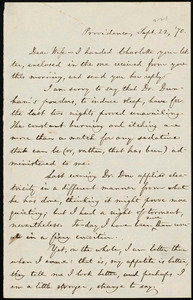 Providence, Sept. 22, '70.
Dear Wife - I handed Charlotte your let-
ter, enclosed in the one received from you
this morning, and send you her reply.
I am sorry to say that Dr. Dun-
ham's powders, to induce sleep, have for
the last two nights proved unavailing.
The constant burning and itching are
more than a match for any sedative
that can be (or, rather, that has been) ad-
ministered to me.
Last evening Dr. Dow applied elec-
tricity in a different manner from what
he has done, thinking it might prove more
quieting; but I had a night of torment,
nevertheless. To-day I have been
in a
Yet, on the whole, I am better than
when I came: that is, my appetite is better,
they tell me I look better, and perhaps I
am a little stronger, strange to say.